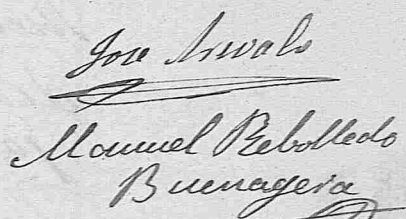 Jose Arevalo
Manuel Rebolledo
Buenagera